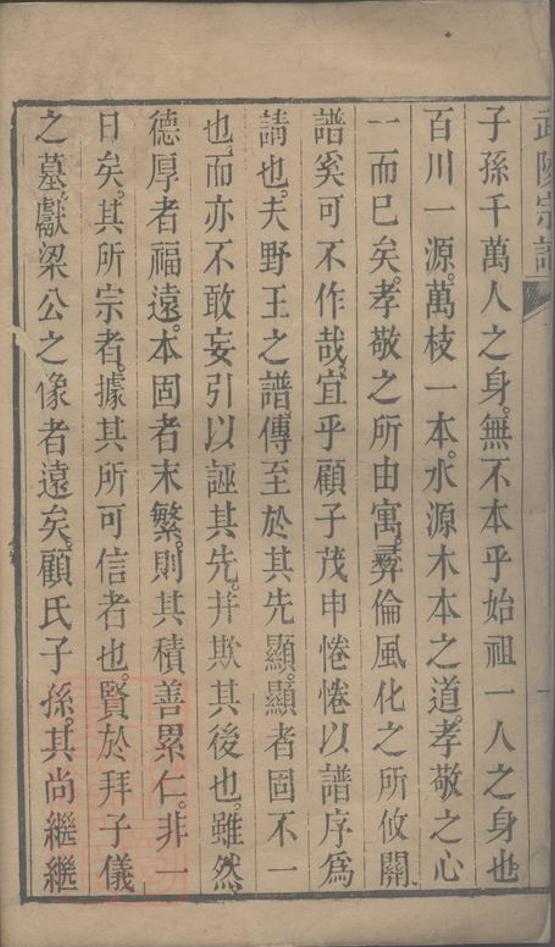 武陵宗譜
子孫千萬人之身。無不本乎始祖一人之身也
百川一源。萬枝一本。水源木本之道。孝敬之心
一而已矣。孝敬之所由寓。彝倫風化之所攸關。
譜奚可不作哉。宜乎顧子茂申惓惓以譜序為
請也。夫野王之譜。傳至於其先顯。顯者固不一
也。而亦不敢妄引以誣其先。幷欺其後也。雖然。
德厚者福遠。本固者末繁。則其積善累仁。非一
日矣。其所宗者。據其所可信者也。賢於拜子儀
之墓。獻梁公之像者遠矣。顧氏子孫。其尚繼繼